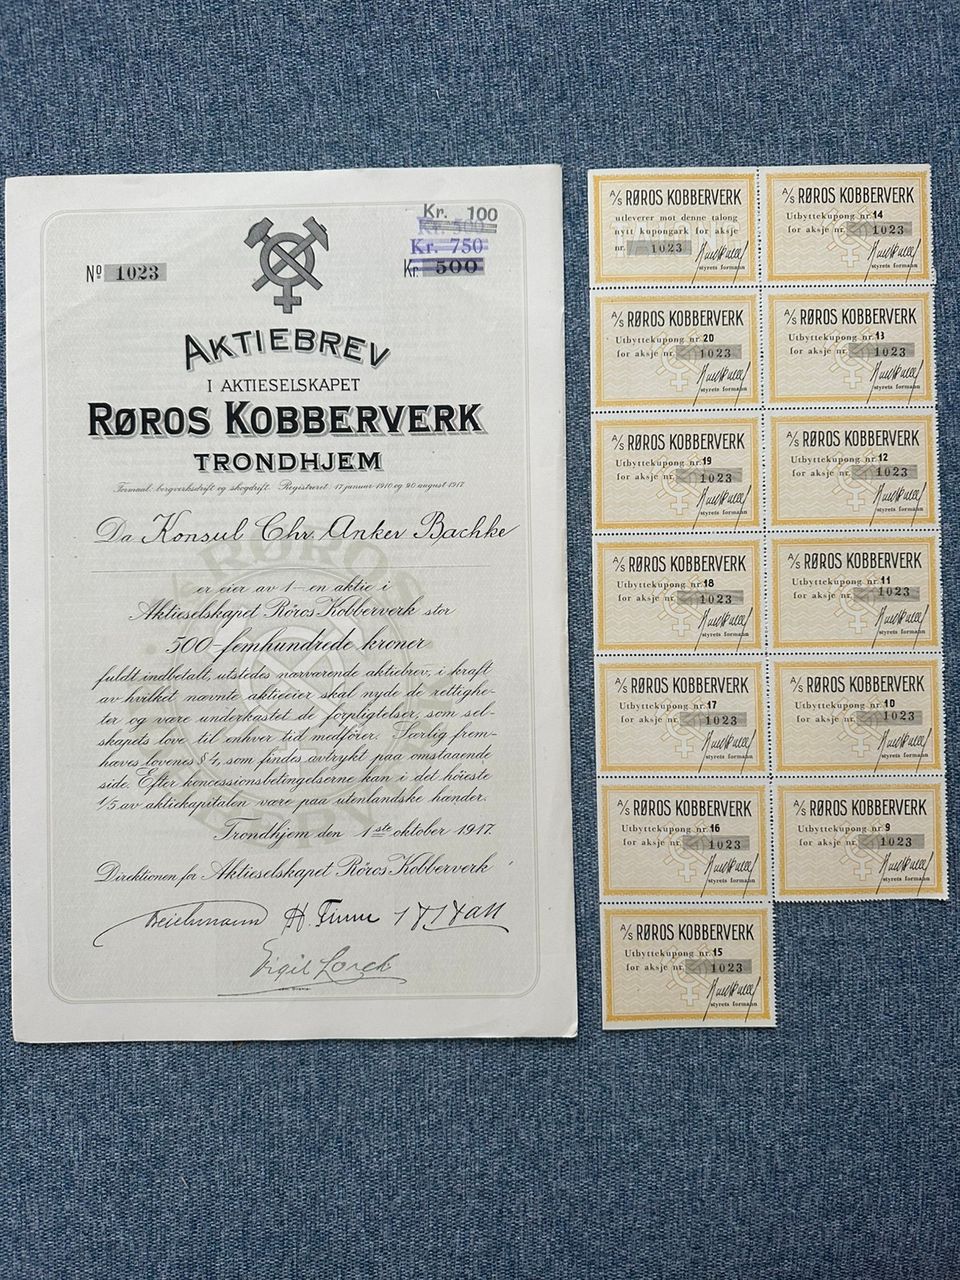 Kr. 100
Kr. 500
Kr. 750
Kr. 500
Nº 1023
AKTIEBREV
I AKTIESELSKAPET
RØROS KOBBERVERK
TRONDHJEM
Formaal: bergverksdrift og skogdrift. Registreret 17 januar 1910 og 20 august 1917.
Da Konsul Chr. Anker Bachke
er eier av 1–en aktie i
Aktieselskapet Röros Kobberverk stor
500–femhundrede kroner
fuldt indbetalt, utstedes nærværende aktiebrev, i kraft
av hvilket nævnte aktieeier skal nyde de rettighe-
ter og være underkastet de forpligtelser, som sel-
skapets love til enhver tid medfører. Særlig frem-
hæves lovenes § 4, som findes avtrykt paa omstaaende
side. Efter koncessionsbetingelserne kan i det høieste
1/5 av aktiekapitalen være paa utenlandske hænder.
Trondhjem den 1ste oktober 1917.
Direktionen for Aktieselskapet Röros Kobberverk
Virgil Lorck
RØROS
A/S RØROS KOBBERVERK
utleverer mot denne talong
nytt kupongark for aksje
nr. 1023
styrets formann
A/S RØROS KOBBERVERK
Utbyttekupong nr. 20
for aksje nr. 1023
styrets formann
A/S RØROS KOBBERVERK
Utbyttekupong nr. 19
for aksje nr. 1023
styrets formann
A/S RØROS KOBBERVERK
Utbyttekupong nr. 18
for aksje nr. 1023
styrets formann
A/S RØROS KOBBERVERK
Utbyttekupong nr. 17
for aksje nr. 1023
styrets formann
A/S RØROS KOBBERVERK
Utbyttekupong nr. 16
for aksje nr. 1023
styrets formann
A/S RØROS KOBBERVERK
Utbyttekupong nr. 15
for aksje nr. 1023
styrets formann
A/S RØROS KOBBERVERK
Utbyttekupong nr. 14
for aksje nr. 1023
styrets formann
A/S RØROS KOBBERVERK
Utbyttekupong nr. 13
for aksje nr. 1023
styrets formann
A/S RØROS KOBBERVERK
Utbyttekupong nr. 12
for aksje nr. 1023
styrets formann
A/S RØROS KOBBERVERK
Utbyttekupong nr. 11
for aksje nr. 1023
styrets formann
A/S RØROS KOBBERVERK
Utbyttekupong nr. 10
for aksje nr. 1023
styrets formann
A/S RØROS KOBBERVERK
Utbyttekupong nr. 9
for aksje nr. 1023
styrets formann